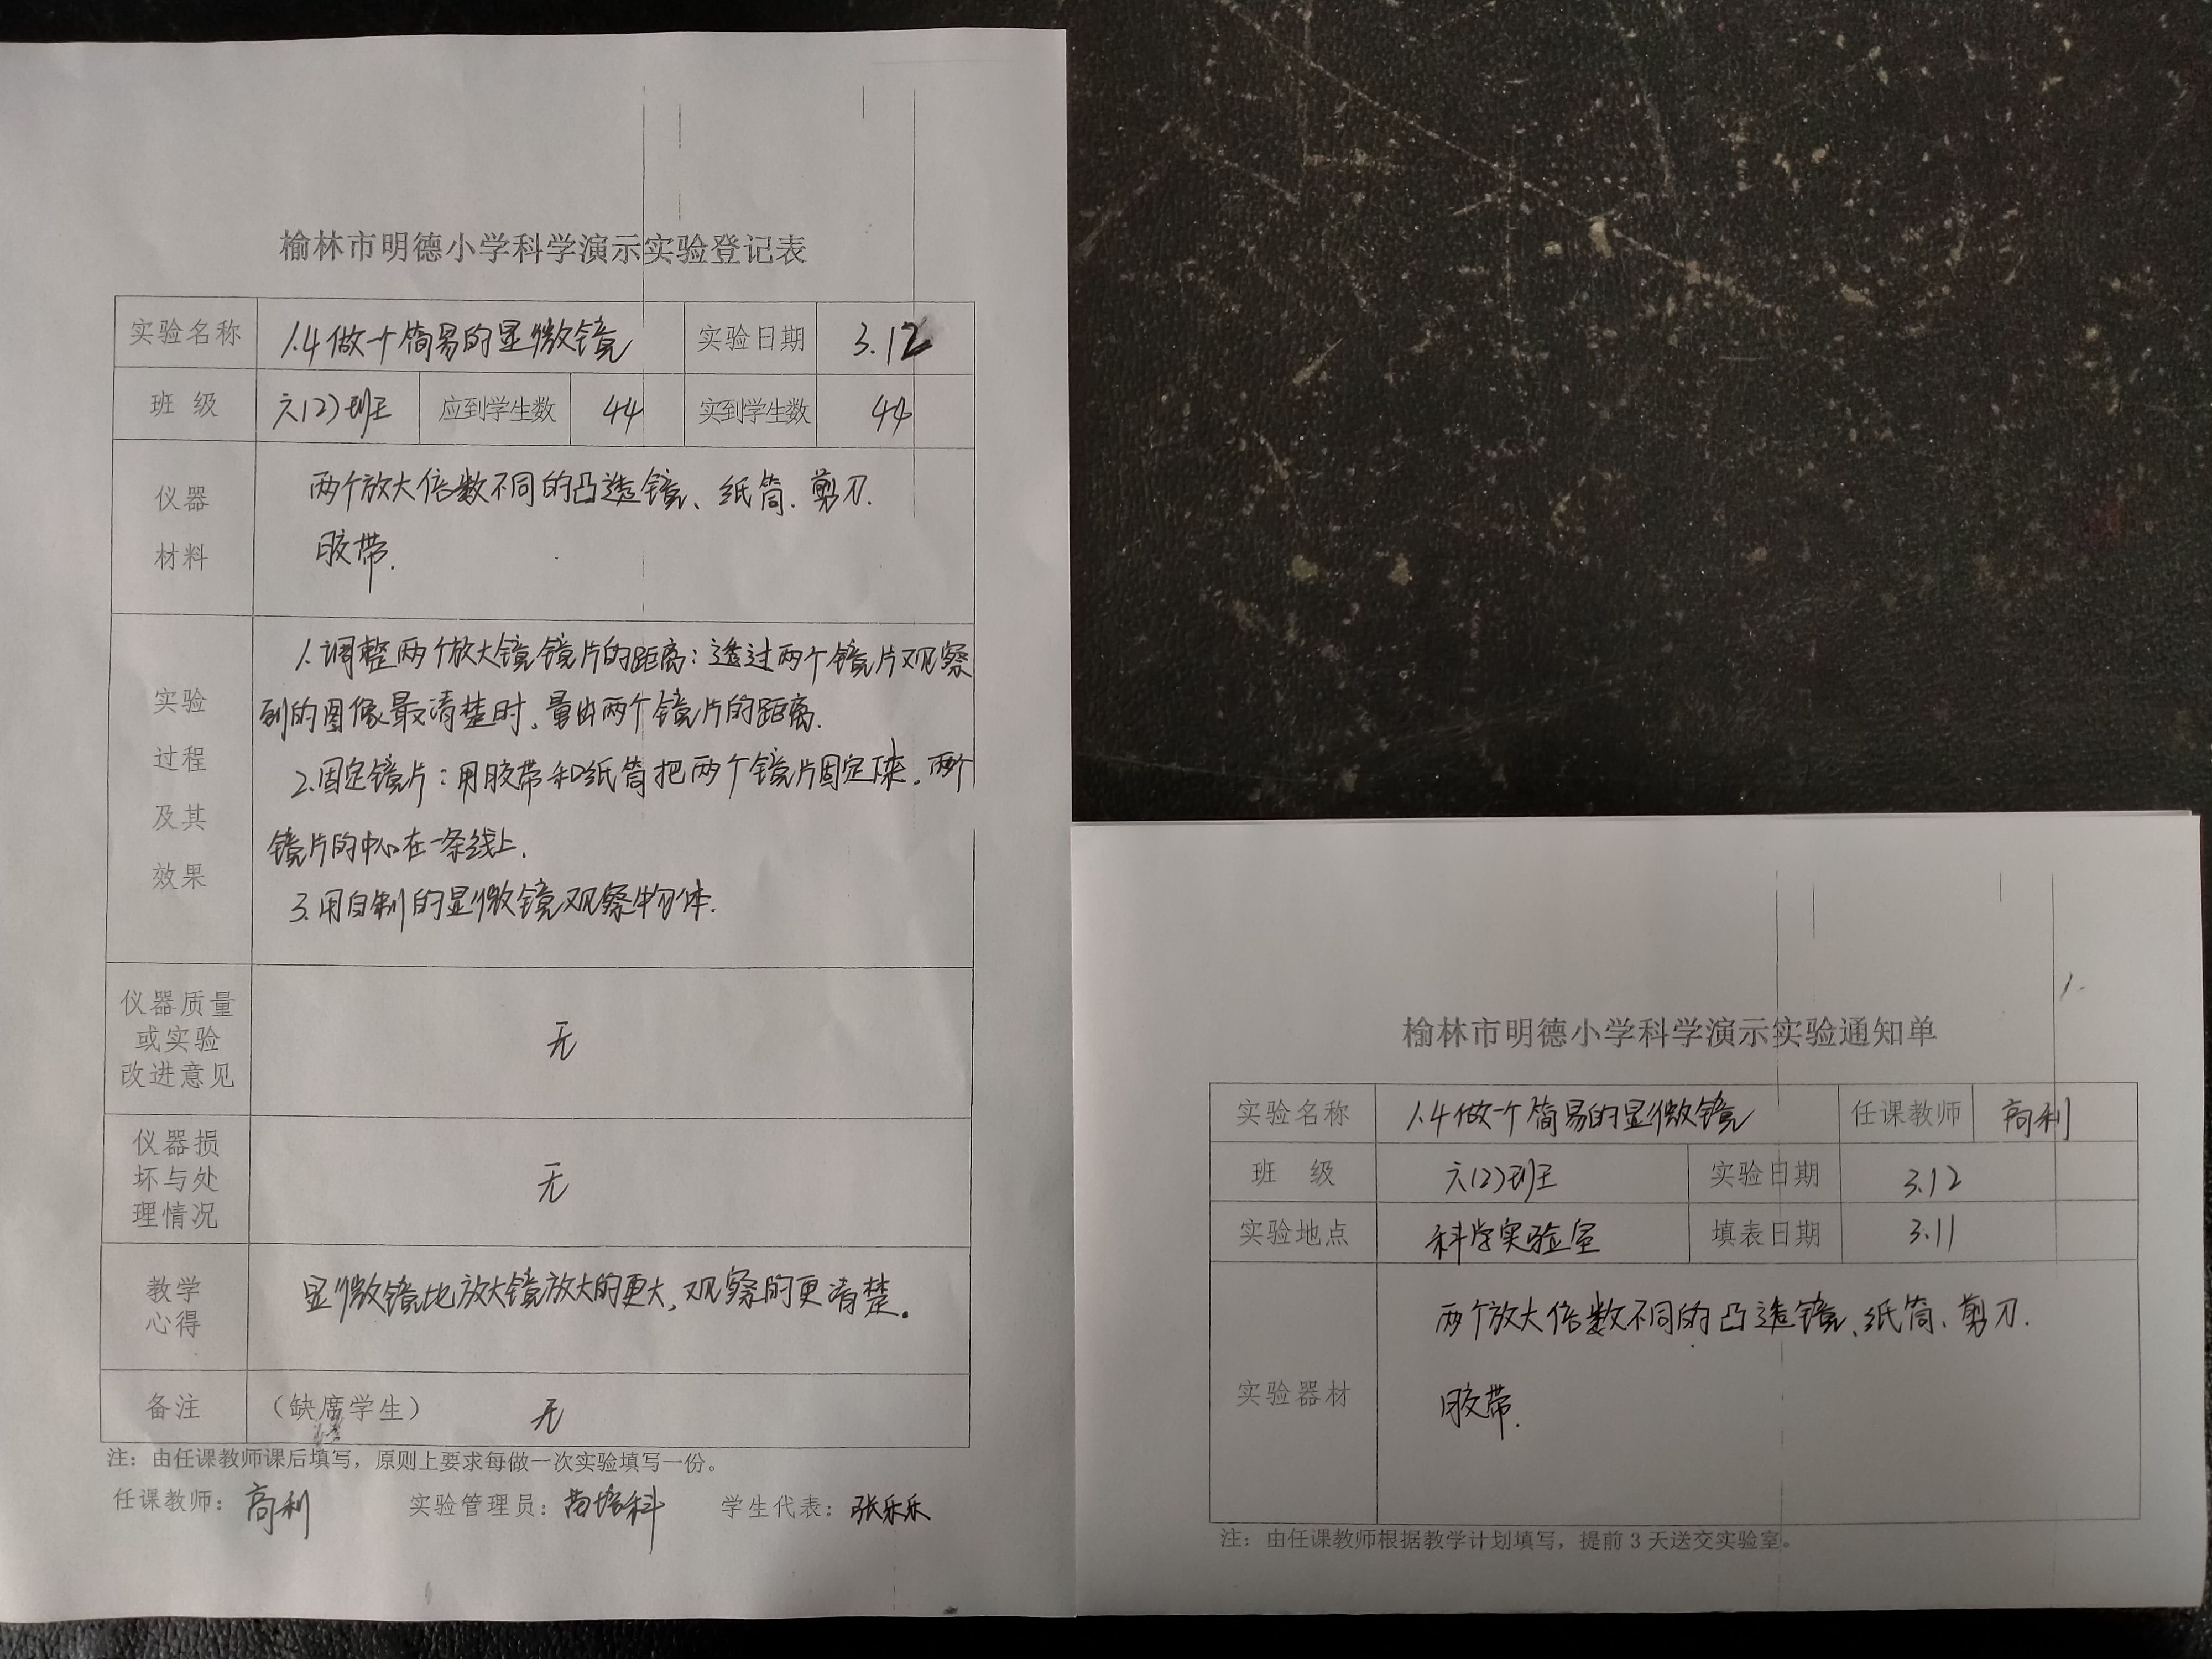 榆林市明德小学科学演示实验登记表
实验名称 1.4做一个简易的显微镜 实验日期 3.12
班 级 六(2)班 应到学生数 44 实到学生数 44
仪器
材料
两个放大倍数不同的凸透镜、纸筒、剪刀.
胶带.
实验
过程
及其
效果
1.调整两个放大镜镜片的距离:透过两个镜片观察
到的图像最清楚时,量出两个镜片的距离.
2.固定镜片:用胶带和纸筒把两个镜片固定下来,两个
镜片的中心在一条线上.
3.用自制的显微镜观察物体.
仪器质量
或实验
改进意见
无
仪器损
坏与处
理情况
无
教学
心得
显微镜比放大镜放大的更大,观察的更清楚。
备注 (缺席学生) 无
注:由任课教师课后填写,原则上要求每做一次实验填写一份。
任课教师:高利 实验管理员:苗培科 学生代表:张乐乐
榆林市明德小学科学演示实验通知单
实验名称 1.4做一个简易的显微镜 任课教师 高利
班 级 六(2)班 实验日期 3.12
实验地点 科学实验室 填表日期 3.11
实验器材
两个放大倍数不同的凸透镜、纸筒、剪刀.
胶带.
注:由任课教师根据教学计划填写,提前3天送交实验室。